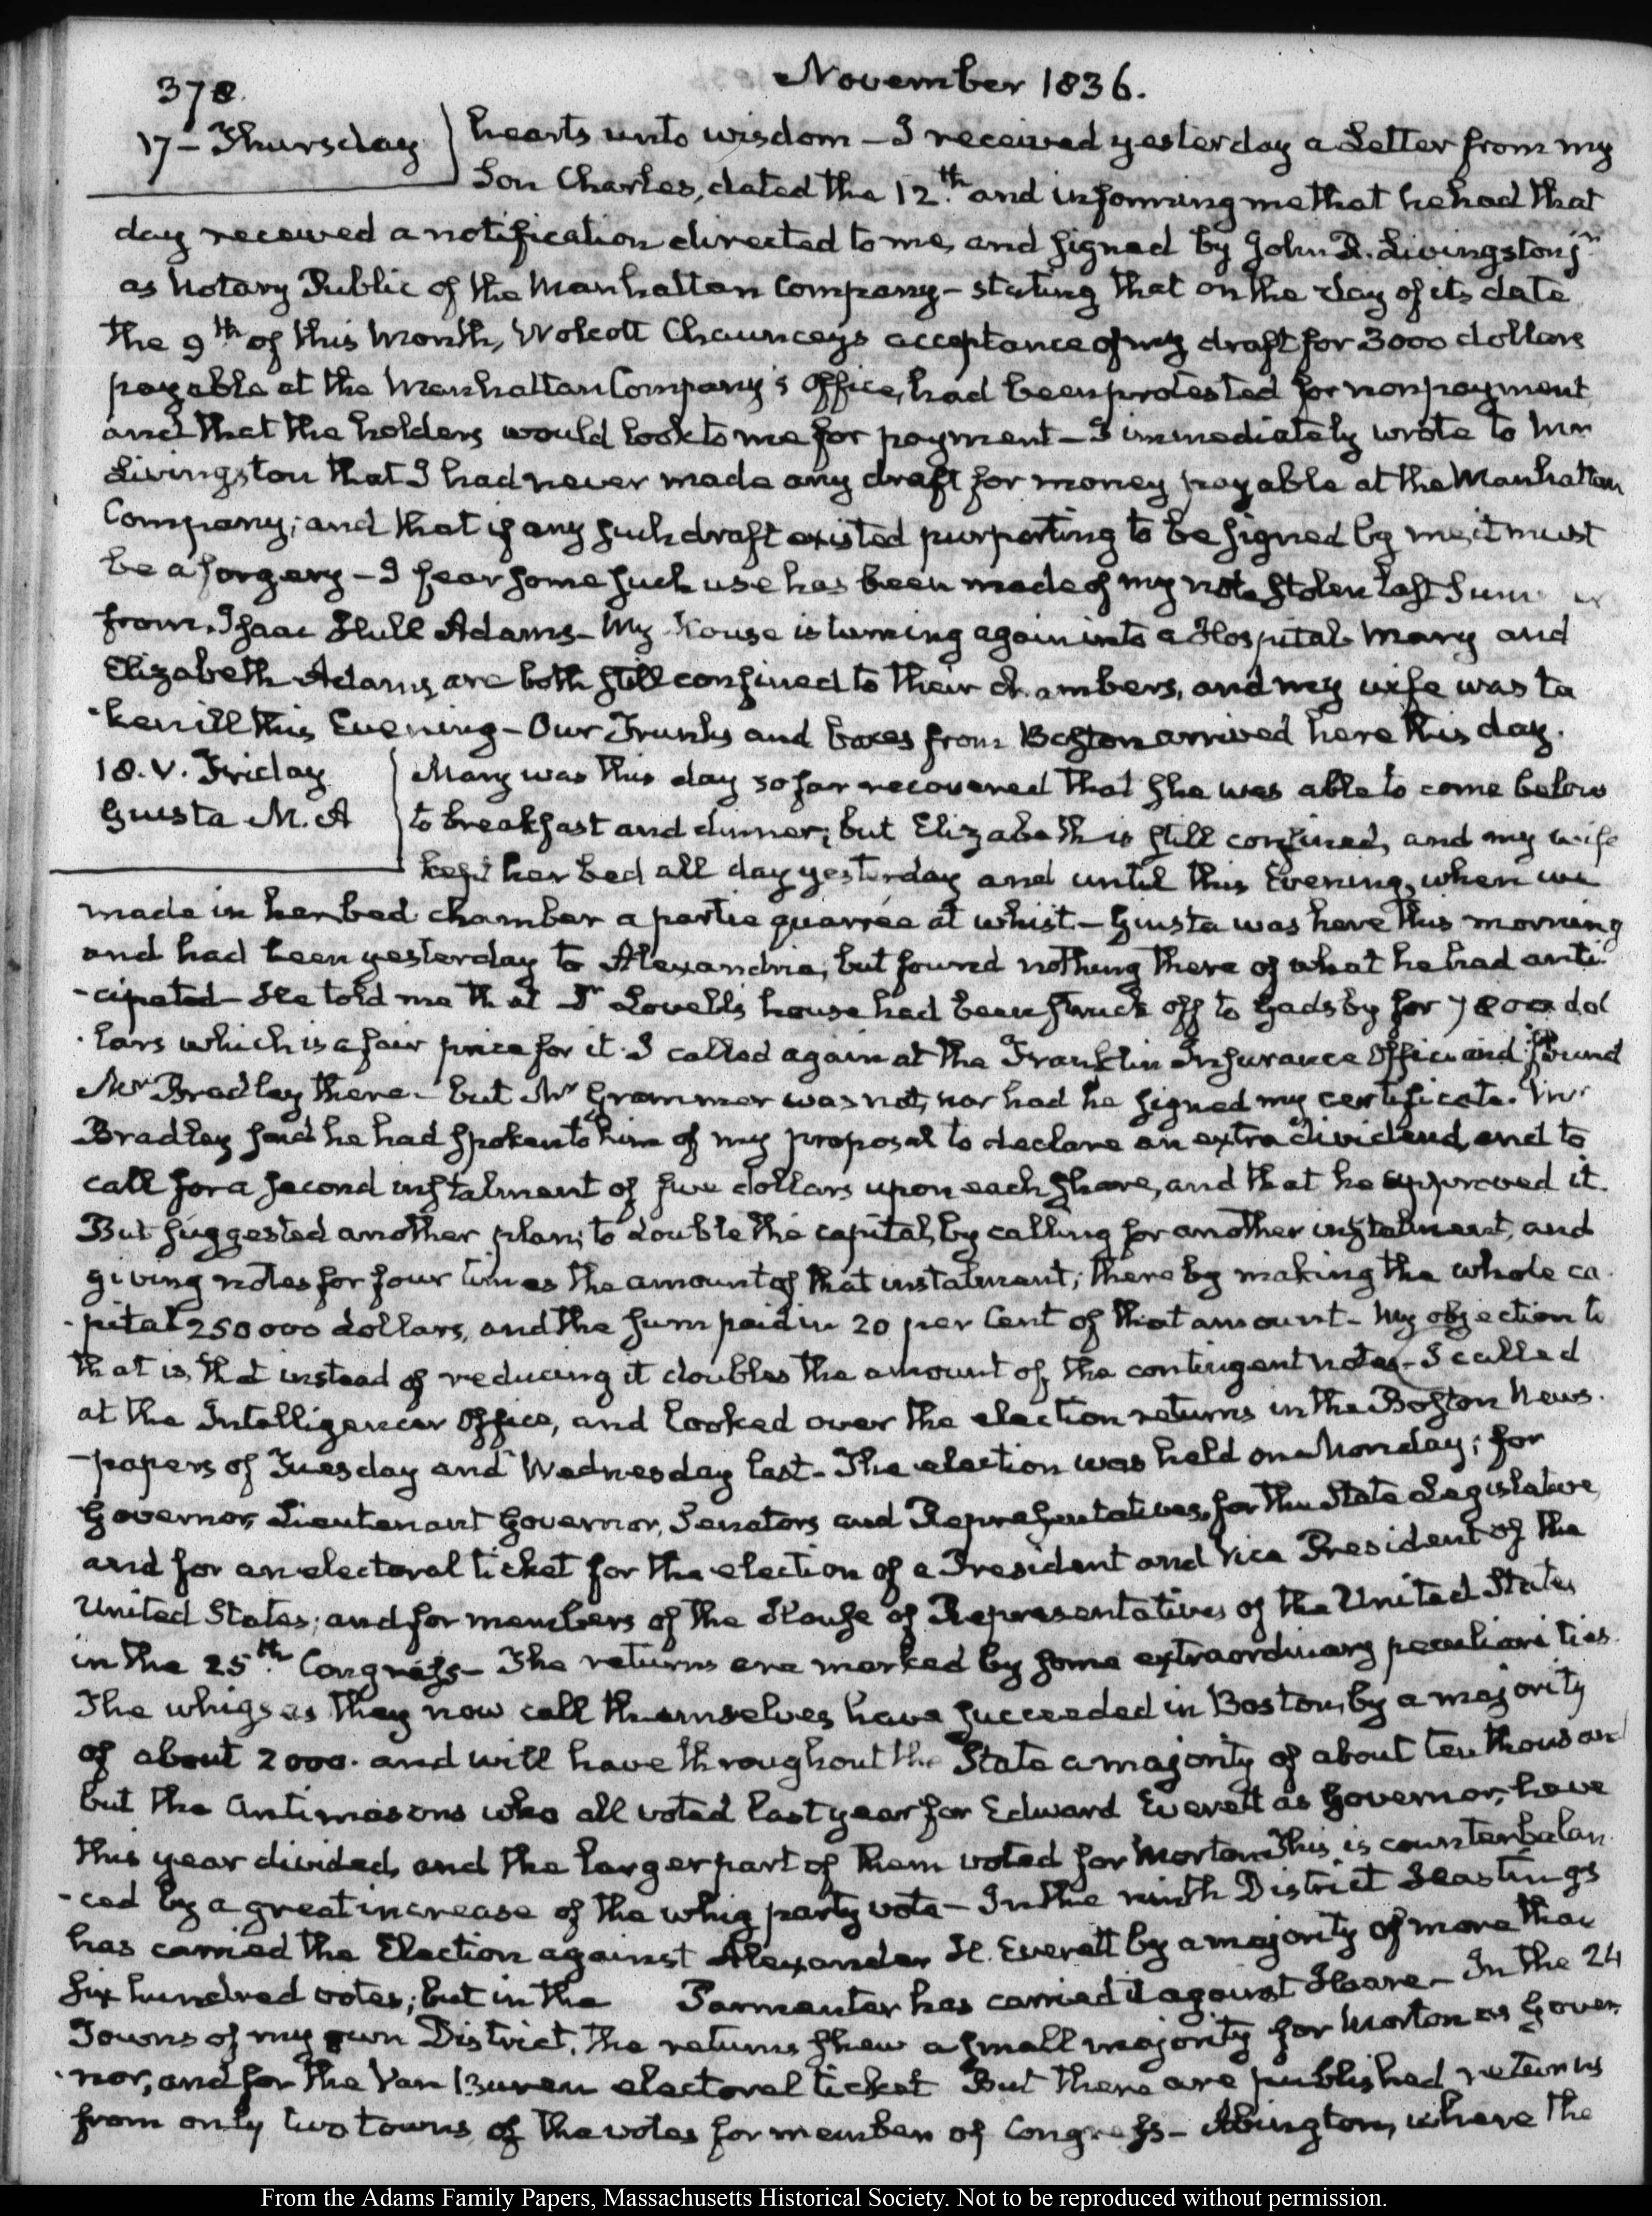 378.
November 1836.
17 – Thursday
hearts unto wisdom – I received yesterday a Letter from my
Son Charles, dated the 12th. and informing me that he had that
day received a notification directed to me, and signed by John R. Livingston jr.
as Notary Public of the Manhattan Company – stating that on the day of its date
the 9th of this Month, Wolcott Chauncey's acceptance of my draft for 3000 dollars
payable at the Manhattan Company's Office, had been protested for nonpayment
and that the holders would look to me for payment – I immediately wrote to Mr
Livingston that I had never made any draft for money payable at the Manhattan
Company; and that if any such draft existed purporting to be signed by me, it must
be a forgery – I fear some such use has been made of my note stolen last
from Isaac Hull Adams – My House is turning again into a Hospital. Mary and
Elizabeth Adams, are both still confined to their chambers, and my wife was ta
-ken ill this Evening – Our Trunks and boxes from Boston arrived here this day.
18. V. Friday
Giusta M. A
Mary was this day so far recovered that she was able to come below
to breakfast and dinner; but Elizabeth is still confined, and my wife
kept her bed all day yesterday and until this Evening, when we
made in her bed chamber a partie quarrée at whist – Giusta was here this morning
and had been yesterday to Alexandria, but found nothing there of what he had anti
-cipated – He told me that Dr Lovell's house had been struck off to Gadsby for 7800 dol
-lars which is a fair price for it. I called again at the Franklin Insurance Office and found
Mr Bradley there – but Mr Grammer was not, nor had he signed my certificate. Mr
Bradley said he had spoken to him of my proposal to declare an extra dividend, and to
call for a second instalment of five dollars upon each share, and that he approved it.
But suggested another plan; to double the capital, by calling for another instalment, and
giving notes for four times the amount of that instalment; thereby making the whole ca
-pital 250000 dollars, and the sum paid in 20 per Cent of that amount – My objection to
that is, that instead of reducing it doubles the amount of the contingent notes – I called
at the Intelligencer Office, and looked over the election returns in the Boston News.
-papers of Tuesday and Wednesday last – The election was held on Monday; for
Governor, Lieutenant Governor, Senators and Representatives, for the State Legislature,
and for an electoral ticket for the election of a President and Vice President of the
United States; and for members of the House of Representatives of the United States
in the 25th. Congress – The returns are marked by some extraordinary peculiarities.
The whigs as they now call themselves have succeeded in Boston, by a majority
of about 2000. and will have throughout the State a majority of about ten thousand
but the Antimasons who all voted last year for Edward Everett as Governor, have
this year divided, and the larger part of them voted for Morton. This is counterbalan
-ced by a great increase of the whig party vote – In the ninth District Hastings
has carried the Election against Alexander H. Everett by a majority of more than
six hundred votes; but in the Parmenter has carried it against Hoare – In the 24
Towns of my own District, the returns shew a small majority for Morton as Gover
-nor, and for the Van Buren electoral ticket But there are published returns
from only two towns of the votes for member of Congress – Abington, where the
From the Adams Family Papers, Massachusetts Historical Society. Not to be reproduced without permission.